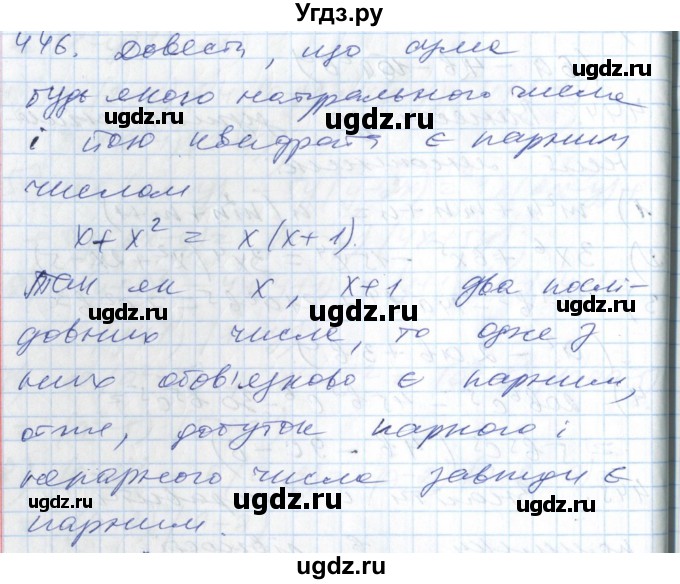 Угдз.ру
446. Довести, що сума
будь якого натурального числа
і його квадрата є парним
числом
x + x² = x(x+1).
Так як x, x+1 два послі-
довних числа, то одже з
них обов'язково є парним,
отже, добуток парного і
непарного числа завжди є
парним.
ugdz.ru
ugdz.ru
ugdz.ru
ugdz.ru
ugdz.ru
ugdz.ru
ugdz.ru
ugdz.ru
ugdz.ru
ugdz.ru
ugdz.ru
ugdz.ru
ugdz.ru
ugdz.ru